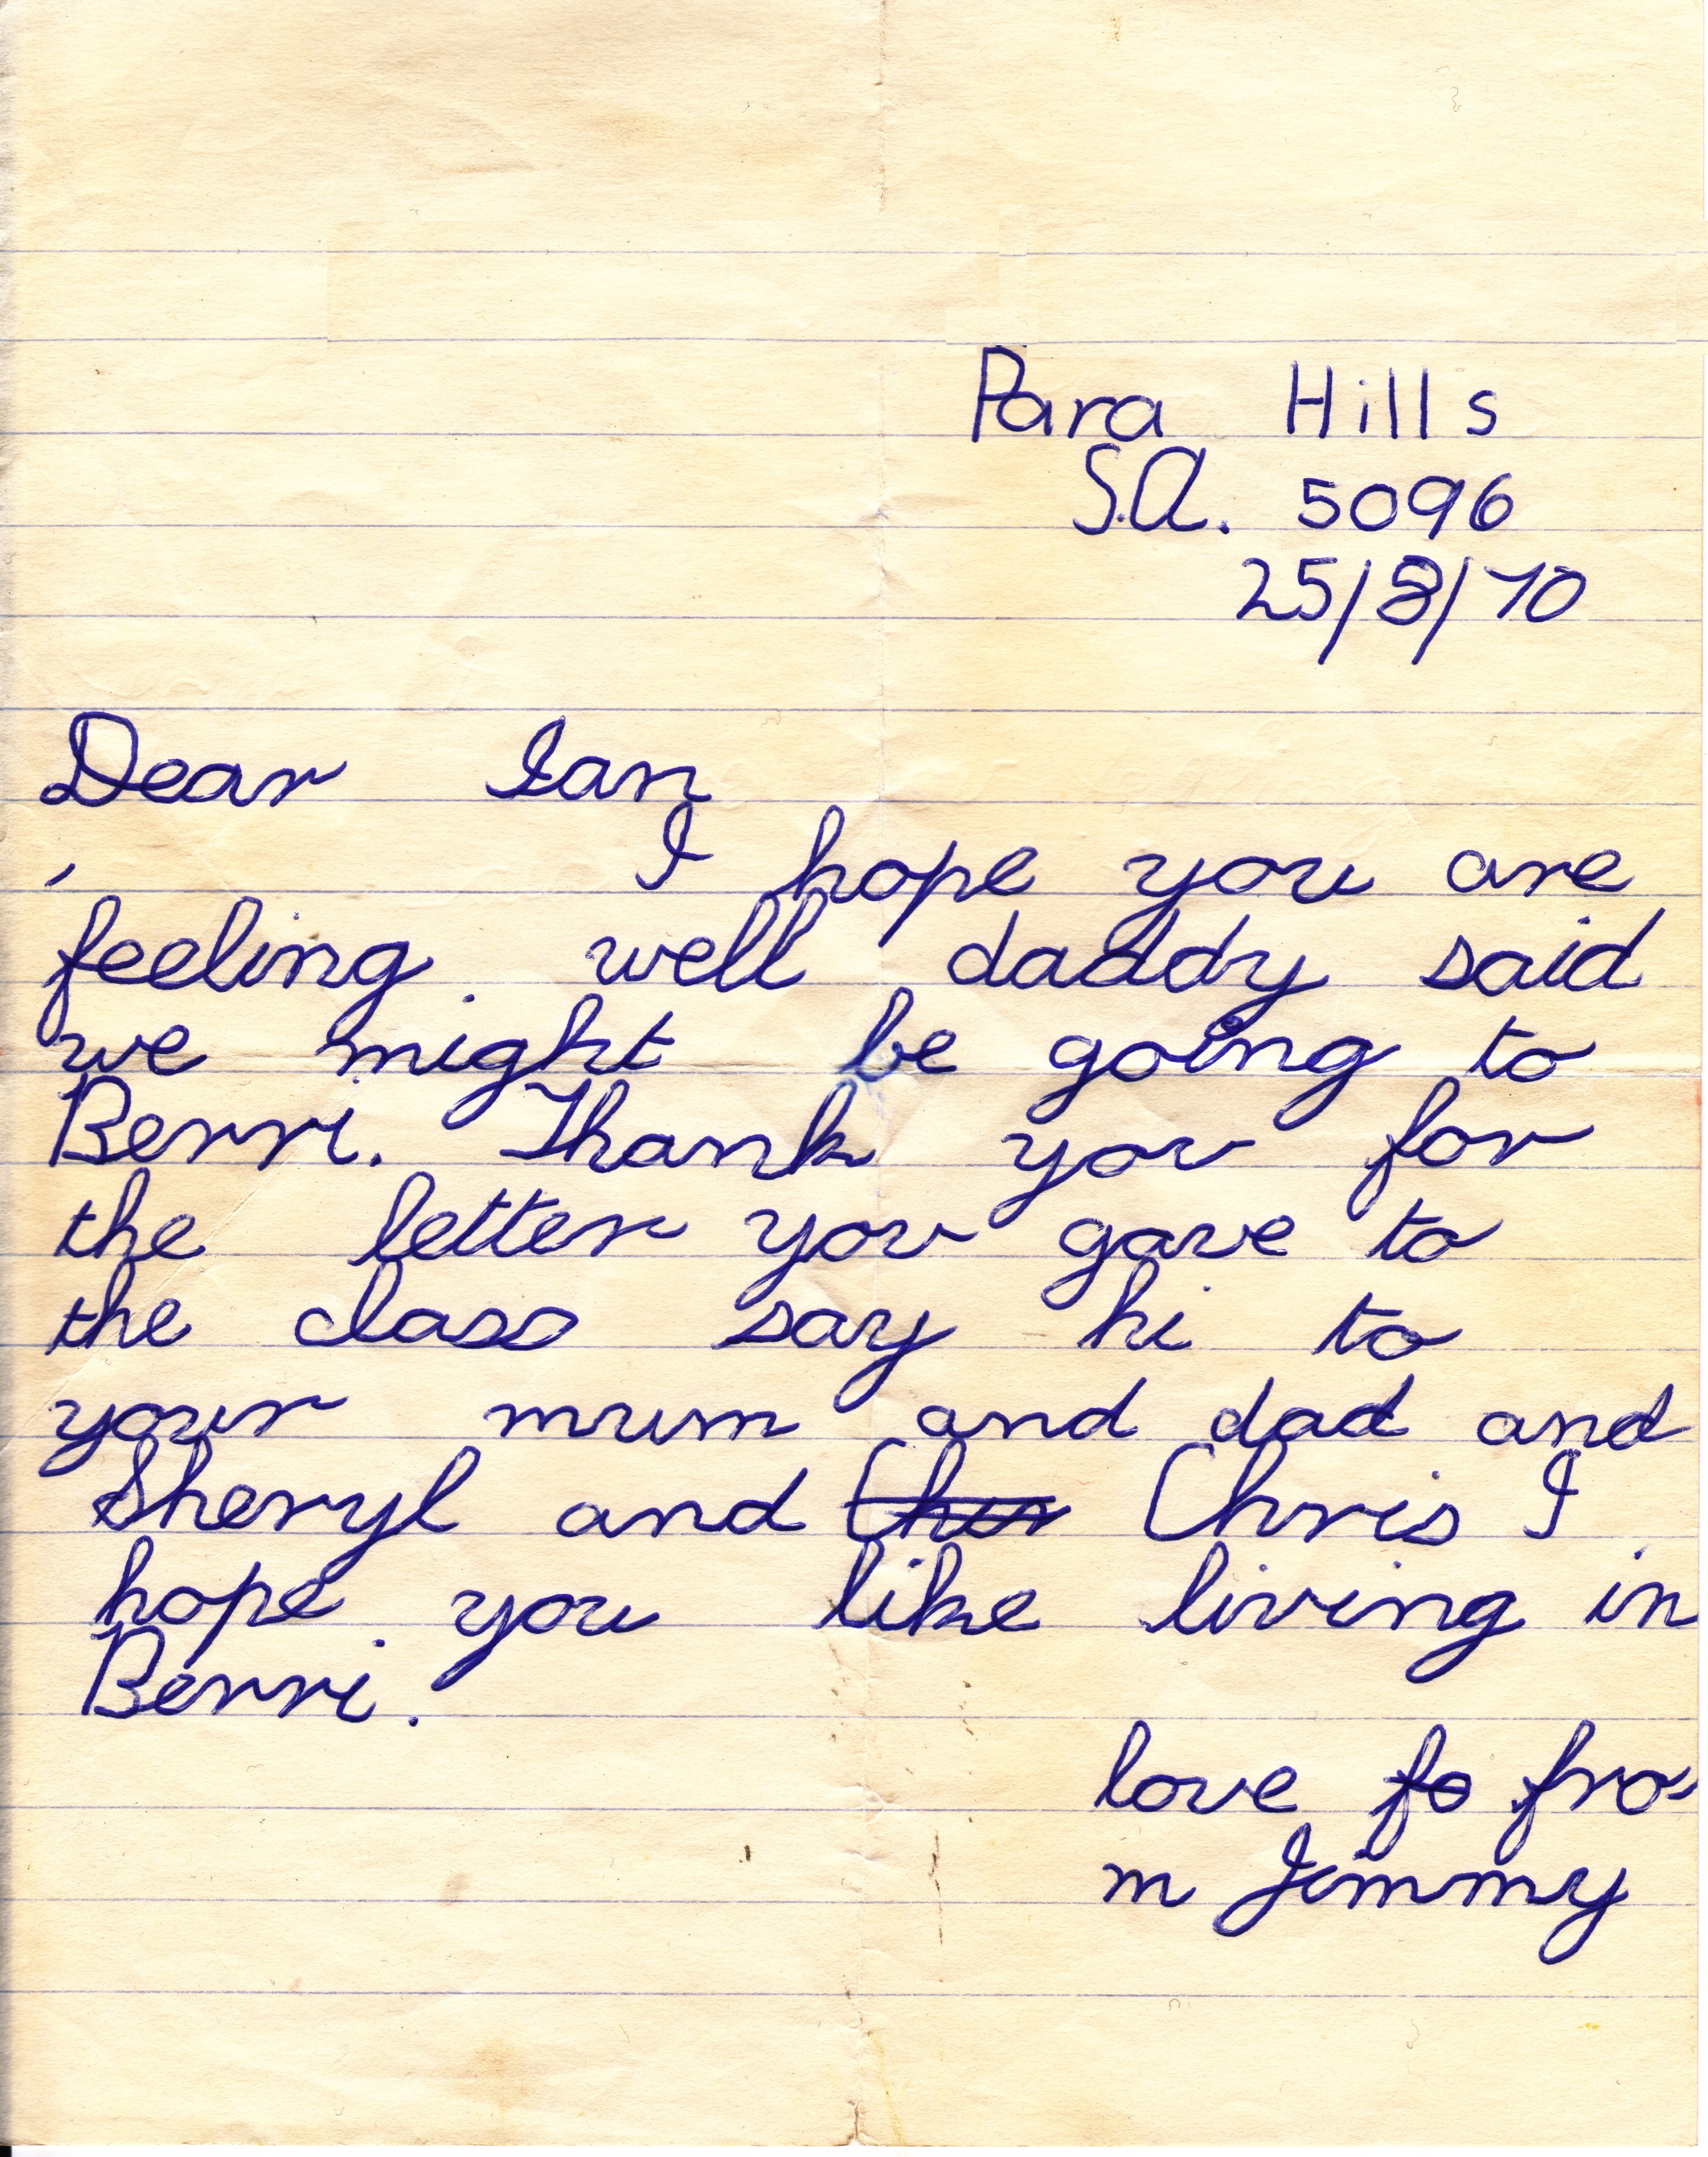 Para Hills
S.A. 5096
25/8/70
Dear Ian
I hope you are
feeling well daddy said
we might be going to
Berri. Thank you for
the letter you gave to
the class say hi to
your mum and dad and
Sheryl and Chris I
hope you like living in
Berri.
love fo fro
m Jimmy